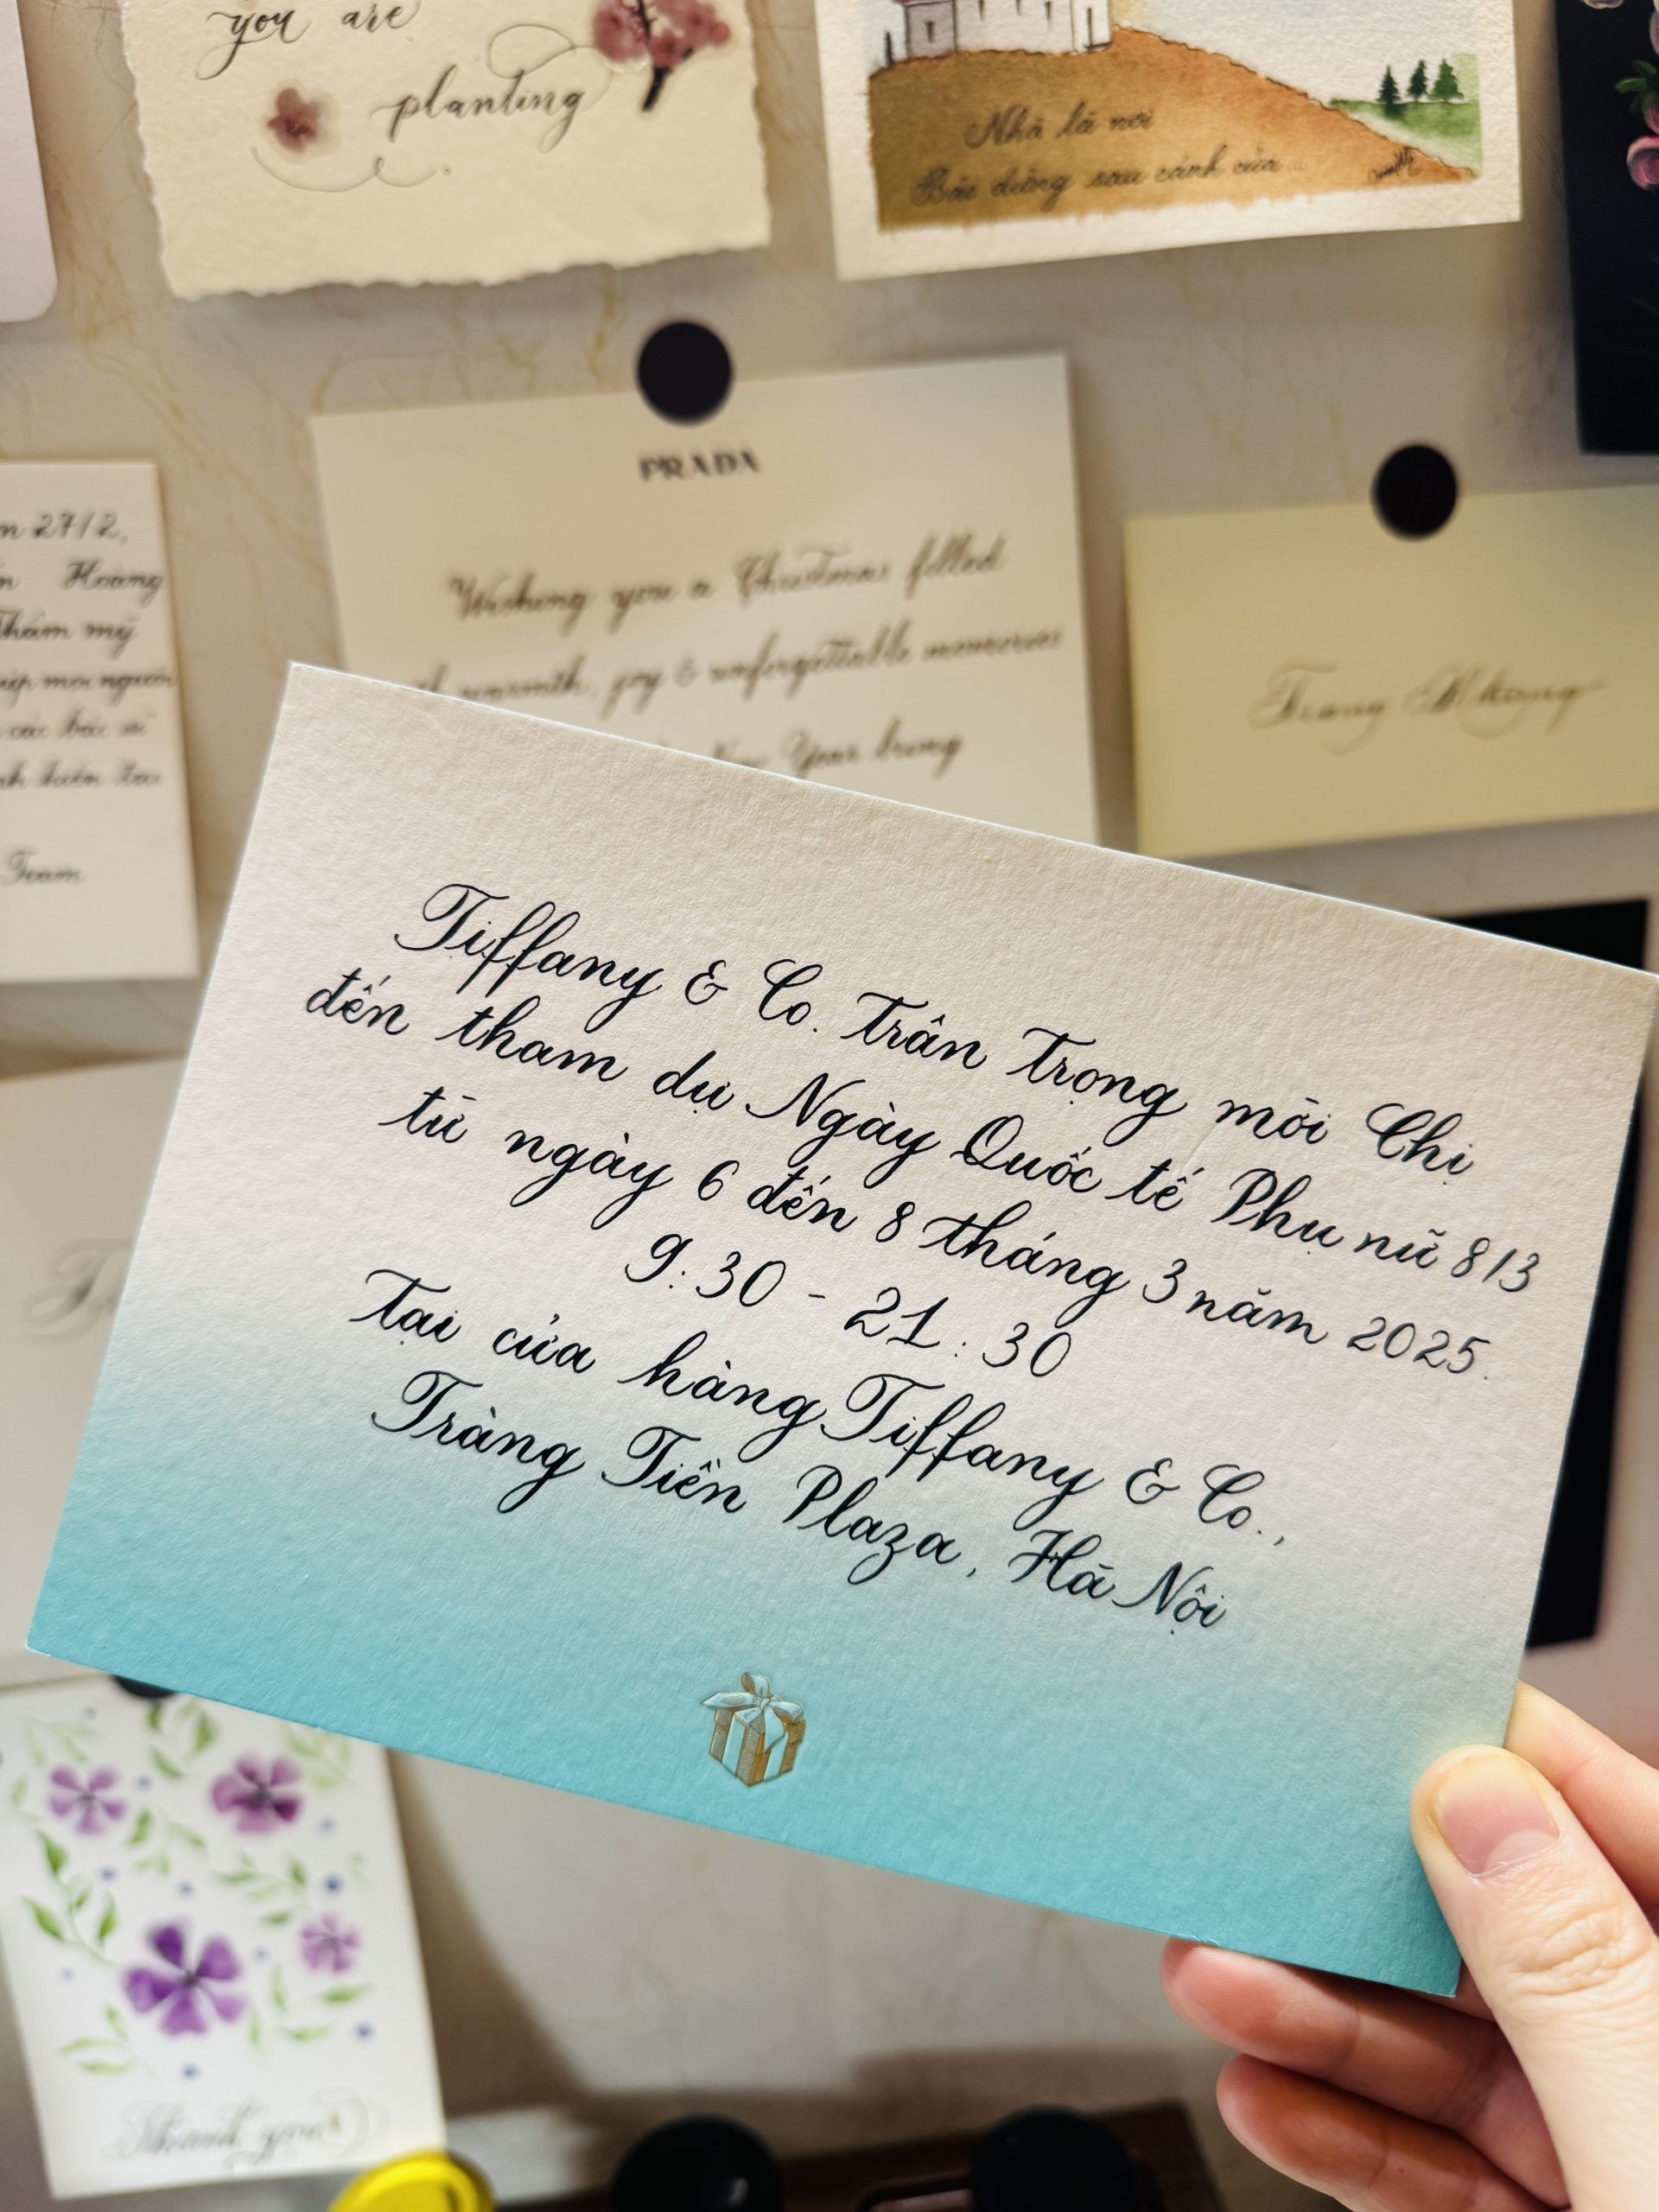 you are
planting
Nhà là nơi
Bảo dưỡng sau cánh cửa
PRADA
Wishing you a Christmas filled
warmth, joy & unforgettable memories
New Year bring
27/2,
Hoàng
Thẩm mỹ
mọi người
các bác sĩ
Team
Trang
Tiffany & Co. trân trọng mời Chị
đến tham dự Ngày Quốc tế Phụ nữ 8/3
từ ngày 6 đến 8 tháng 3 năm 2025.
9:30 - 21:30
Tại cửa hàng Tiffany & Co.,
Tràng Tiền Plaza, Hà Nội
Thank you